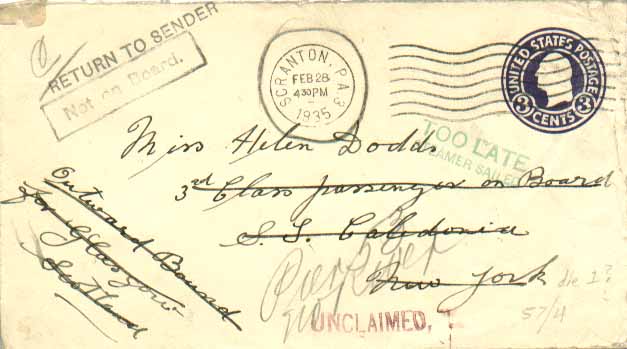 RETURN TO SENDER
Not on Board.
SCRANTON, PA 3
FEB 28
430 PM
1935
UNITED STATES POSTAGE
3 CENTS 3
TOO LATE
STEAMER SAILED
Miss Helen Dodds
3rd Class passenger on Board
S.S. Caledonia
New York
Outward Bound
for Glasgow
Scotland
Pier
UNCLAIMED,
die 1?
57/4